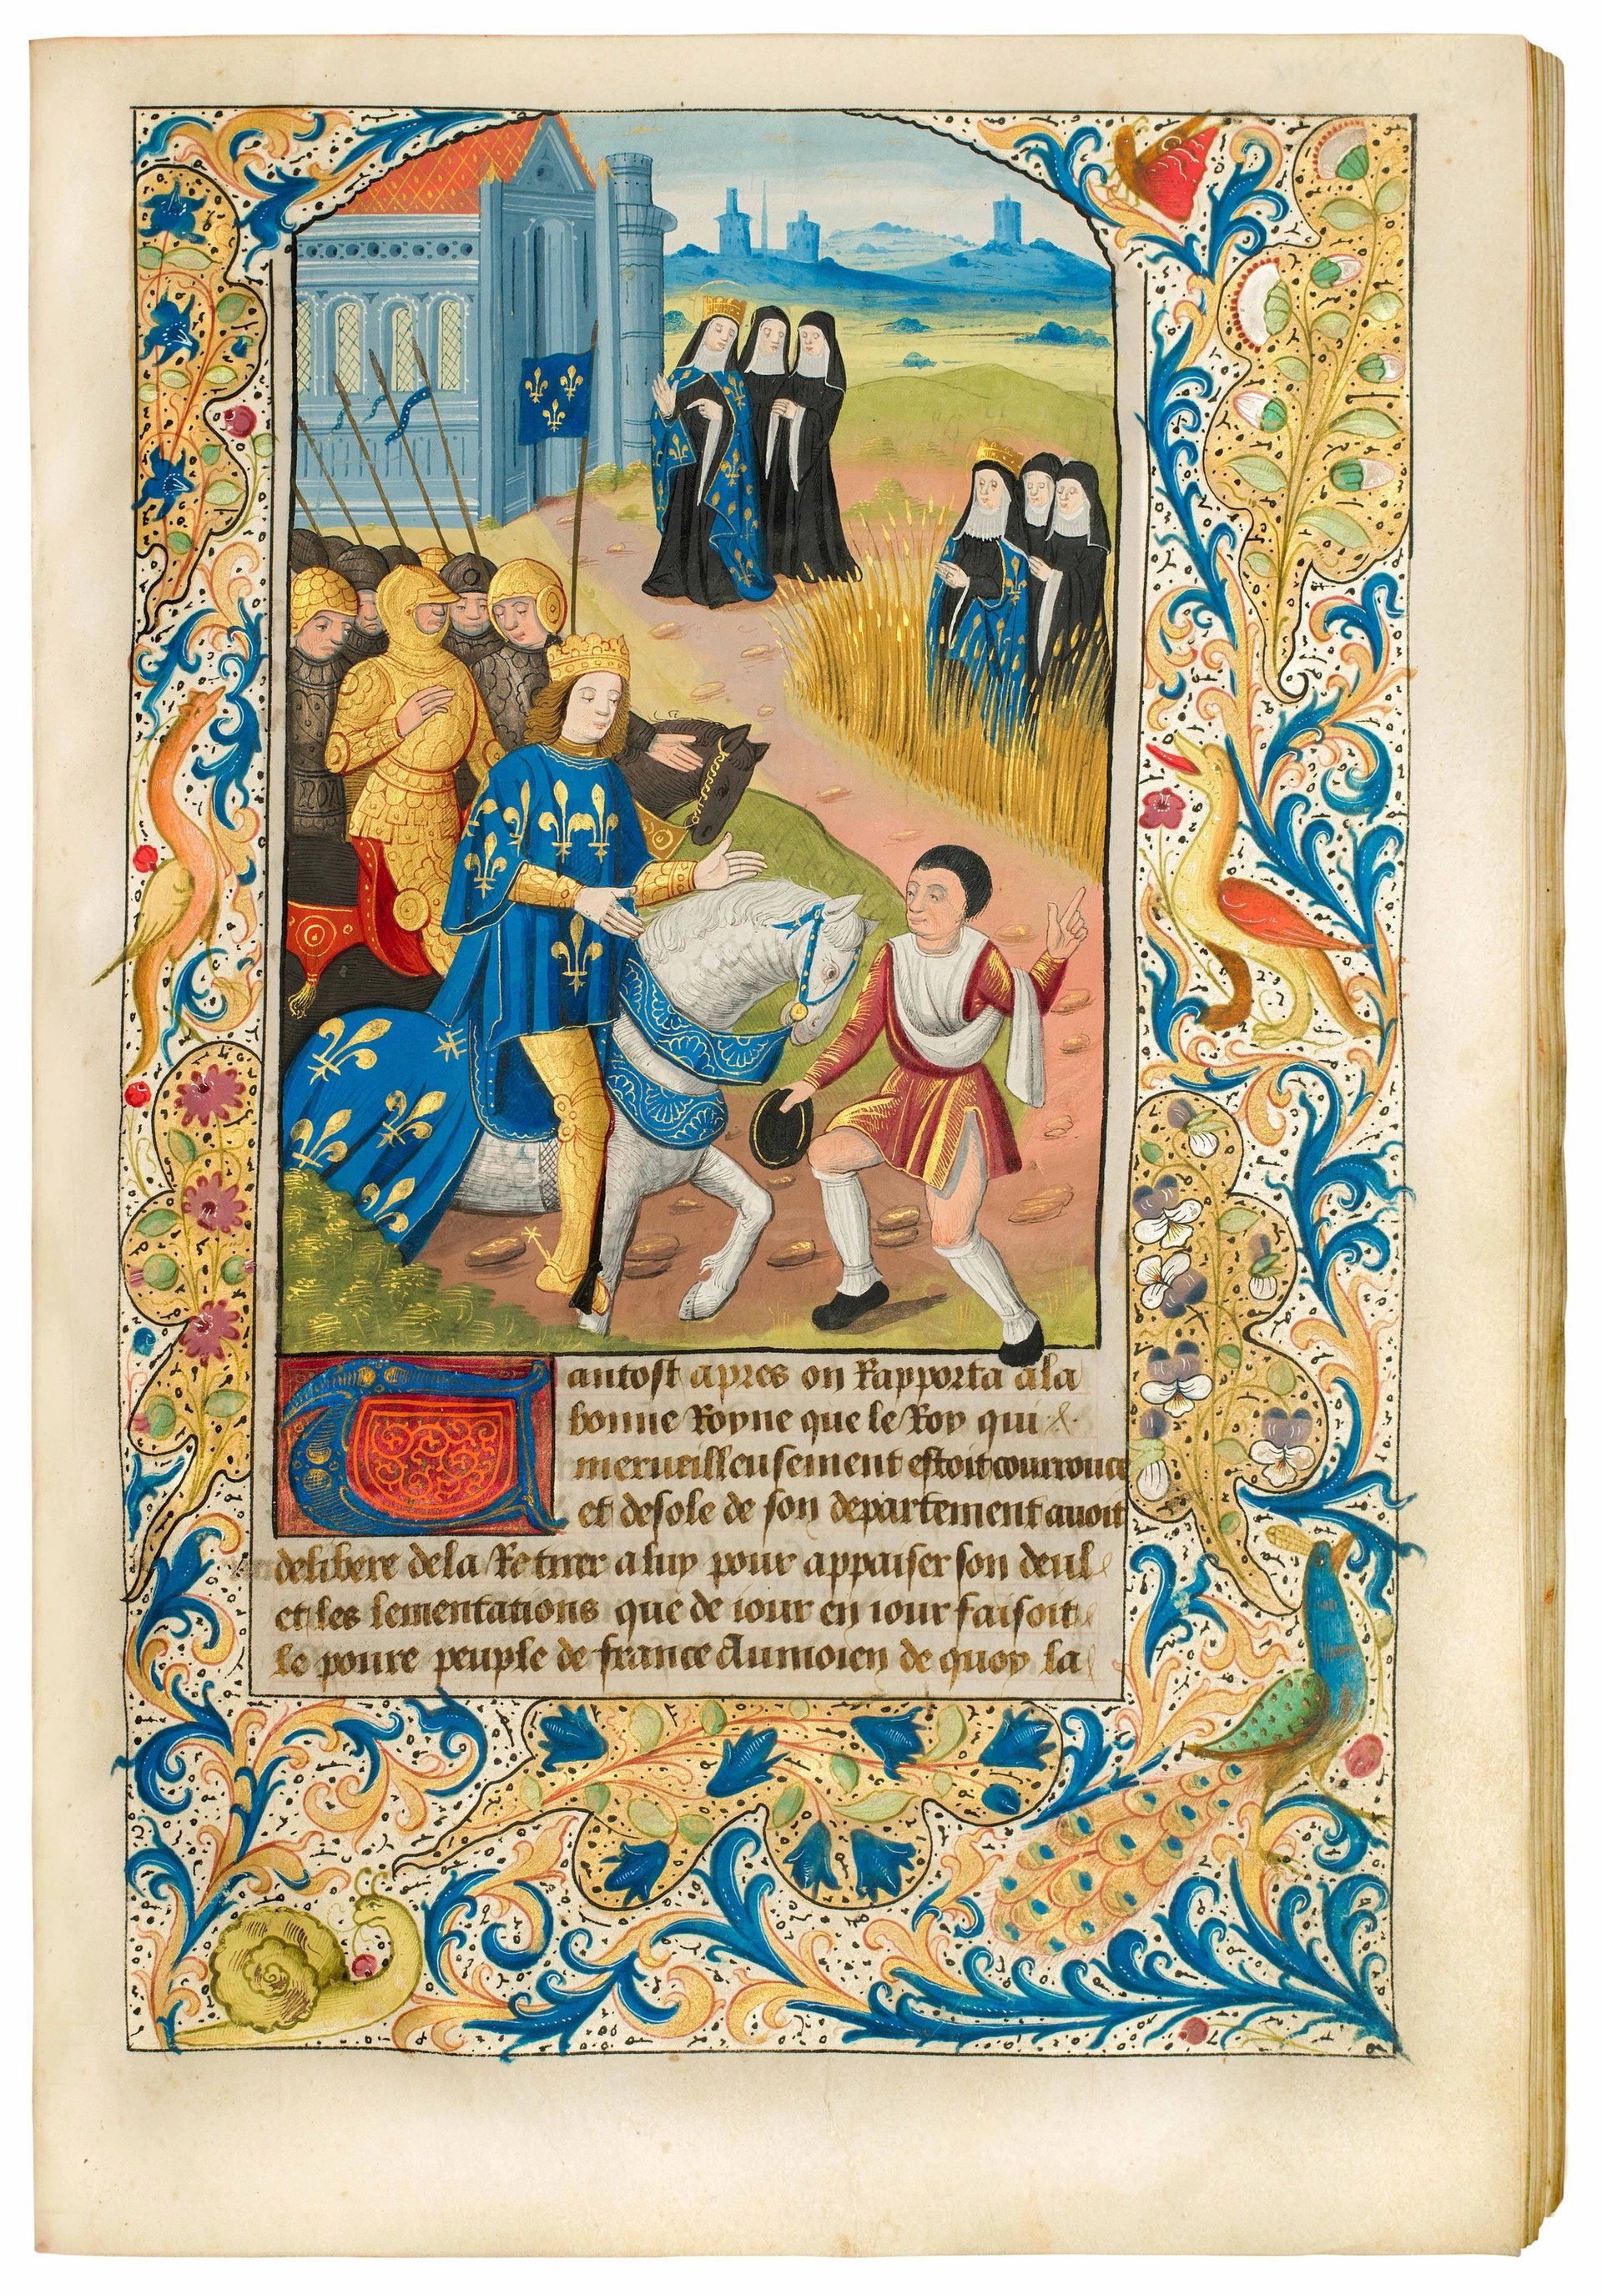 Tantost apres on Rapporta ala
bonne Royne que le Roy qui
merueilleusement estoit courrouce
et desole de son departement auoit
delibere dela Retirer a luy pour appaiser son deul
et les lementations que de iour en iour faisoit
le poure peuple de france Aumoien de quoy la